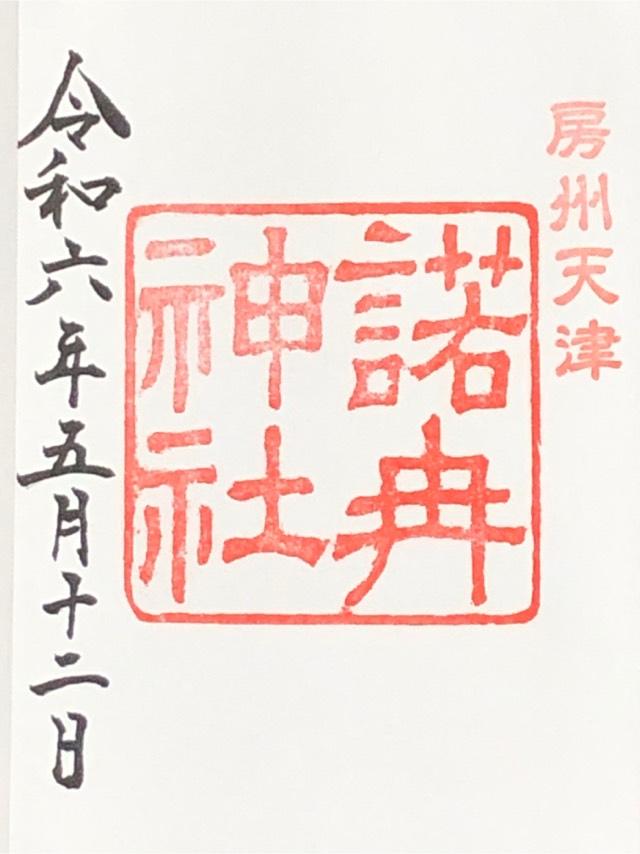 房州天津
諾冉
神社
令和六年五月十二日